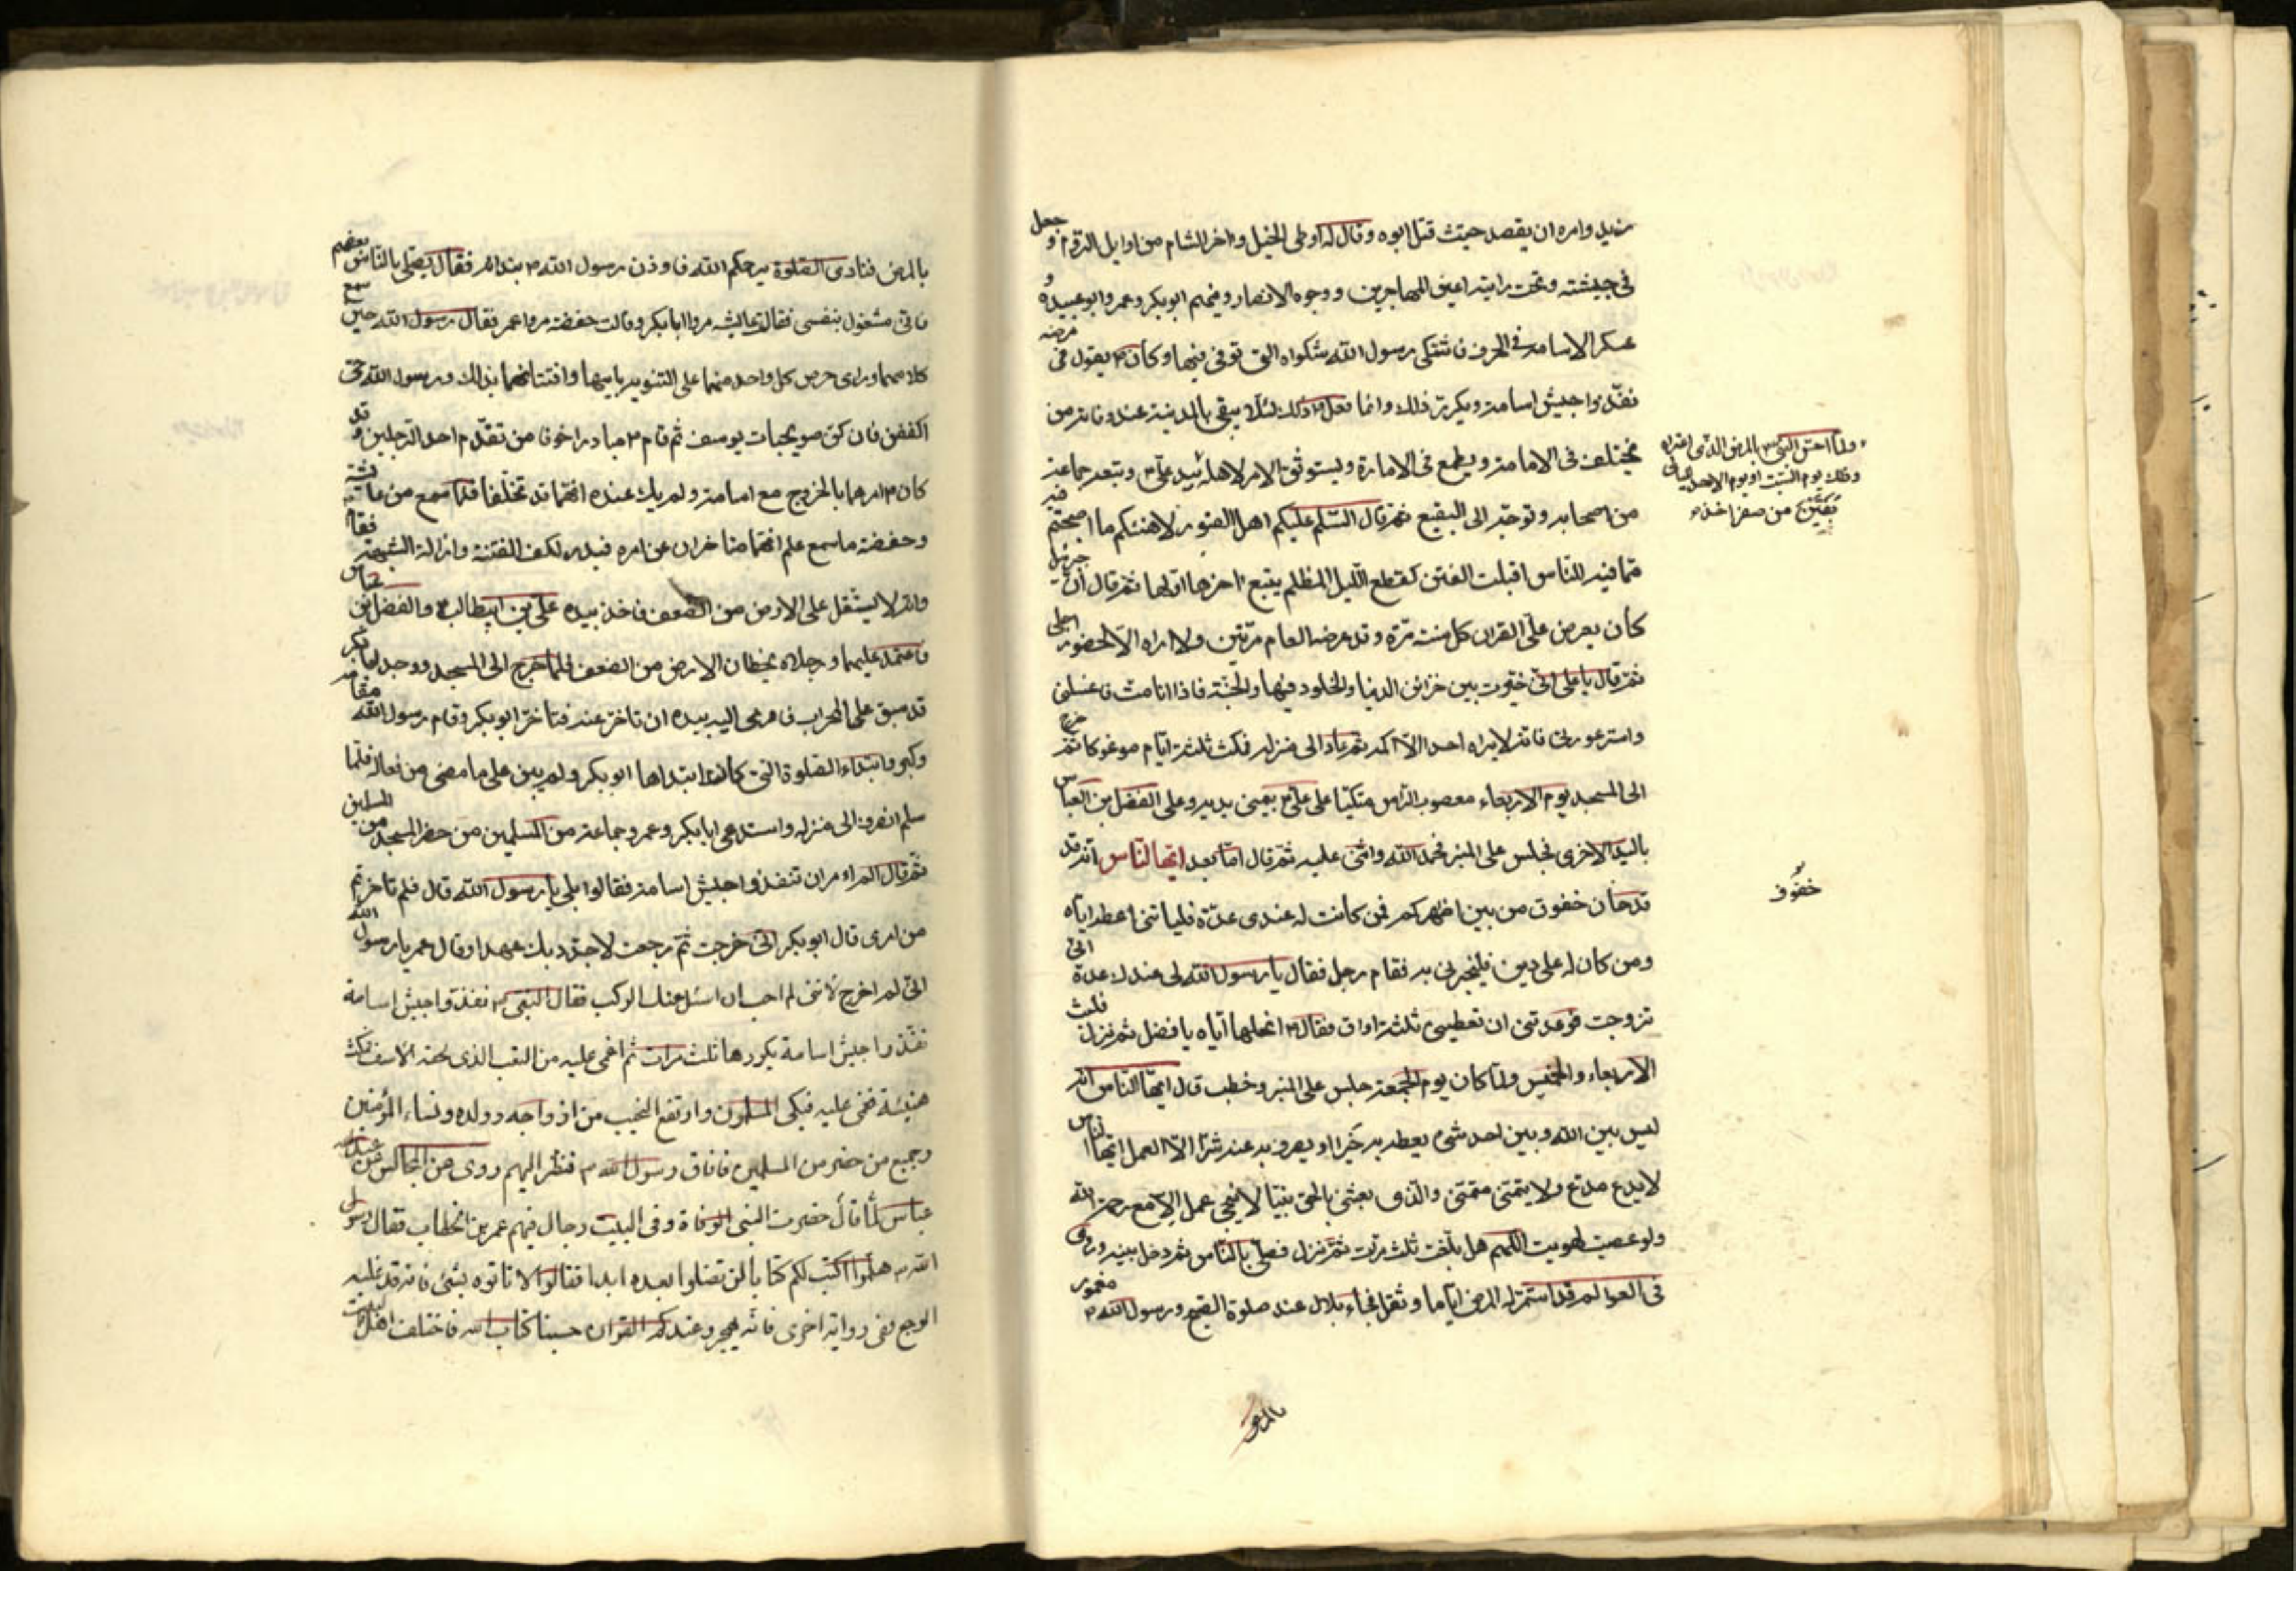 زيد وامره ان يقصد حيث قتل ابوه وقال له اوطى الخيل واخر الشام من اوايل الروم و جعل
فى جيشه وتحت رايته اعيان المهاجرين ووجوه الانصار وفيهم ابوبكر وعمر وابو عبيدة و
عسكر الاسامة فى الجرف فاشتكى رسول الله شكواه التى توفى فيها وكان م يقول فى مرضه
نفذوا جيش اسامة ويكرر ذلك وانما فعل م ذلك لئلا يبقى بالمدينة عند وفاته من
يختلف فى الامامة ويطمع فى الامارة وليستوثق الامر لاهله بيد على م وتبعه جماعة
من اصحابه وتوجه الى البقيع ثم قال السلم عليكم اهل القبور لاهنئكم ما اصبحتم فيه
مما فيه الناس اقبلت الفتن كقطع الليل المظلم يتبع اخرها اولها ثم قال ان جبرئيل
كان يعرض على القران كل سنة مرة وقد عرضه العام مرتين ولا اراه الا لحضور اجلى
ثم قال يا على انى خيرت بين خزائن الدنيا والخلود فيها والجنة فاذا انا مت فاغسلنى
واستر عورتى فانه لا يراه احد الا اكمه ثم عاد الى منزله فمكث ثلثة ايام موعوكا ثم خرج
الى المسجد يوم الاربعاء معصوب الراس متكئا على على م بيمنى يديه وعلى الفضل بن العباس
باليد الاخرى فجلس على المنبر فحمد الله واثنى عليه ثم قال اما بعد ايها الناس انه قد
قد حان خفوق من بين اظهركم فمن كانت له عندى عدة فلياتنى اعطه اياه
ومن كان له على دين فليخبرنى به فقام رجل فقال يا رسول الله لى عندك عدة انى
تزوجت فوعدتنى ان تعطينى ثلثة اواق فقال م انحلها اياه يا فضل ثم نزل فلبث
الاربعاء والخميس ولما كان يوم الجمعة جلس على المنبر وخطب قال ايها الناس انه
ليس بين الله وبين احد شىء يعطه به خيرا او يصرف به عنه شرا الا العمل ايها الناس
لا يدع مدع ولا يتمنى متمنى والذى بعثنى بالحق نبيا لا ينجى عمل الا مع رحمة الله
ولو عصيت لهويت اللهم هل بلغت ثلث مرات ثم نزل فصلى بالناس ثم دخل بيته وروى
فى العوالم قد استمر له المرض اياما وثقل فجاء بلال عند صلوة الصبح ورسول الله م مغمور
بالمرض
ولما احس النبى م بالمرض الذى اعتراه
وذلك يوم السبت او يوم الاحد لليالى
بقين من صفر اخذ م
خفوف
بالمرض فنادى الصلوة يرحمكم الله فاوذن رسول الله م بندائه فقال يصلى بالناس بعضهم
فانى مشغول بنفسى فقالت عايشه مروا ابا بكر وقالت حفصة مروا عمر فقال رسول الله حين سمع
كلامهما وراى حرص كل واحد منهما على التنويه بابيها وافتتانهما بذلك ورسول الله حى
اكففن فان كن صويحبات يوسف ثم قام م مبادرا خوفا من تقدم احد الرجلين و قد
كان م امرهما بالخروج مع اسامة ولم يك عنده انهما قد تخلفا فلما سمع من عايشة
وحفصة ما سمع علم انهما متاخران عن امره فبدر لكف الفتنة وازالة الشبهة فقام
وانه لا يستقل على الارض من الضعف فاخذ بيده على بن ابيطالب م والفضل بن عباس
فاعتمد عليهما ورجلاه يخطان الارض من الضعف فلما خرج الى المسجد ووجد ابا بكر
قد سبق على المحراب فاومى اليه بيده ان تاخر عنه فتاخر ابوبكر وقام رسول الله مقامه
وكبر وابتداء الصلوة التى كان ابتداها ابو بكر ولم يبن على ما مضى من فعاله فلما
سلم انصرف الى منزله واستدعى ابا بكر وعمر وجماعة من المسلمين من حضر المسجد من المسلمين
ثم قال الم اءمر ان تنفذوا جيش اسامة فقالوا بلى يا رسول الله قال فلم تاخرتم
من امرى قال ابو بكر انى خرجت ثم رجعت لاجدد بك عهدا وقال عمر يا رسول الله
انى لم اخرج لاننى لم احب ان اسئل عنك الركب فقال النبى م نفذوا جيش اسامة
نفذوا جيش اسامة يكررها ثلث مرات ثم اغمى عليه من التعب الذى لحقه الاسف فمكث
هنيئة مغمى عليه فبكى المسلمون وارتفع النحيب من ازواجه وولده ونساء المؤمنين
وجميع من حضر من المسلمين فافاق رسول الله م فنظر اليهم روى عن المجالس عن عبد الله
عباس لما قال حضرت النبى الوفاة وفى البيت رجال فيهم عمر بن الخطاب فقال رسول
الله م هلموا اكتب لكم كتابا لن تضلوا بعده ابدا فقالوا لا تاتوه بشئ فانه قد غلبه
الوجع وفى رواية اخرى فانه يهجر وعندكم القران حسبنا كتاب الله فاختلف اهل البيت